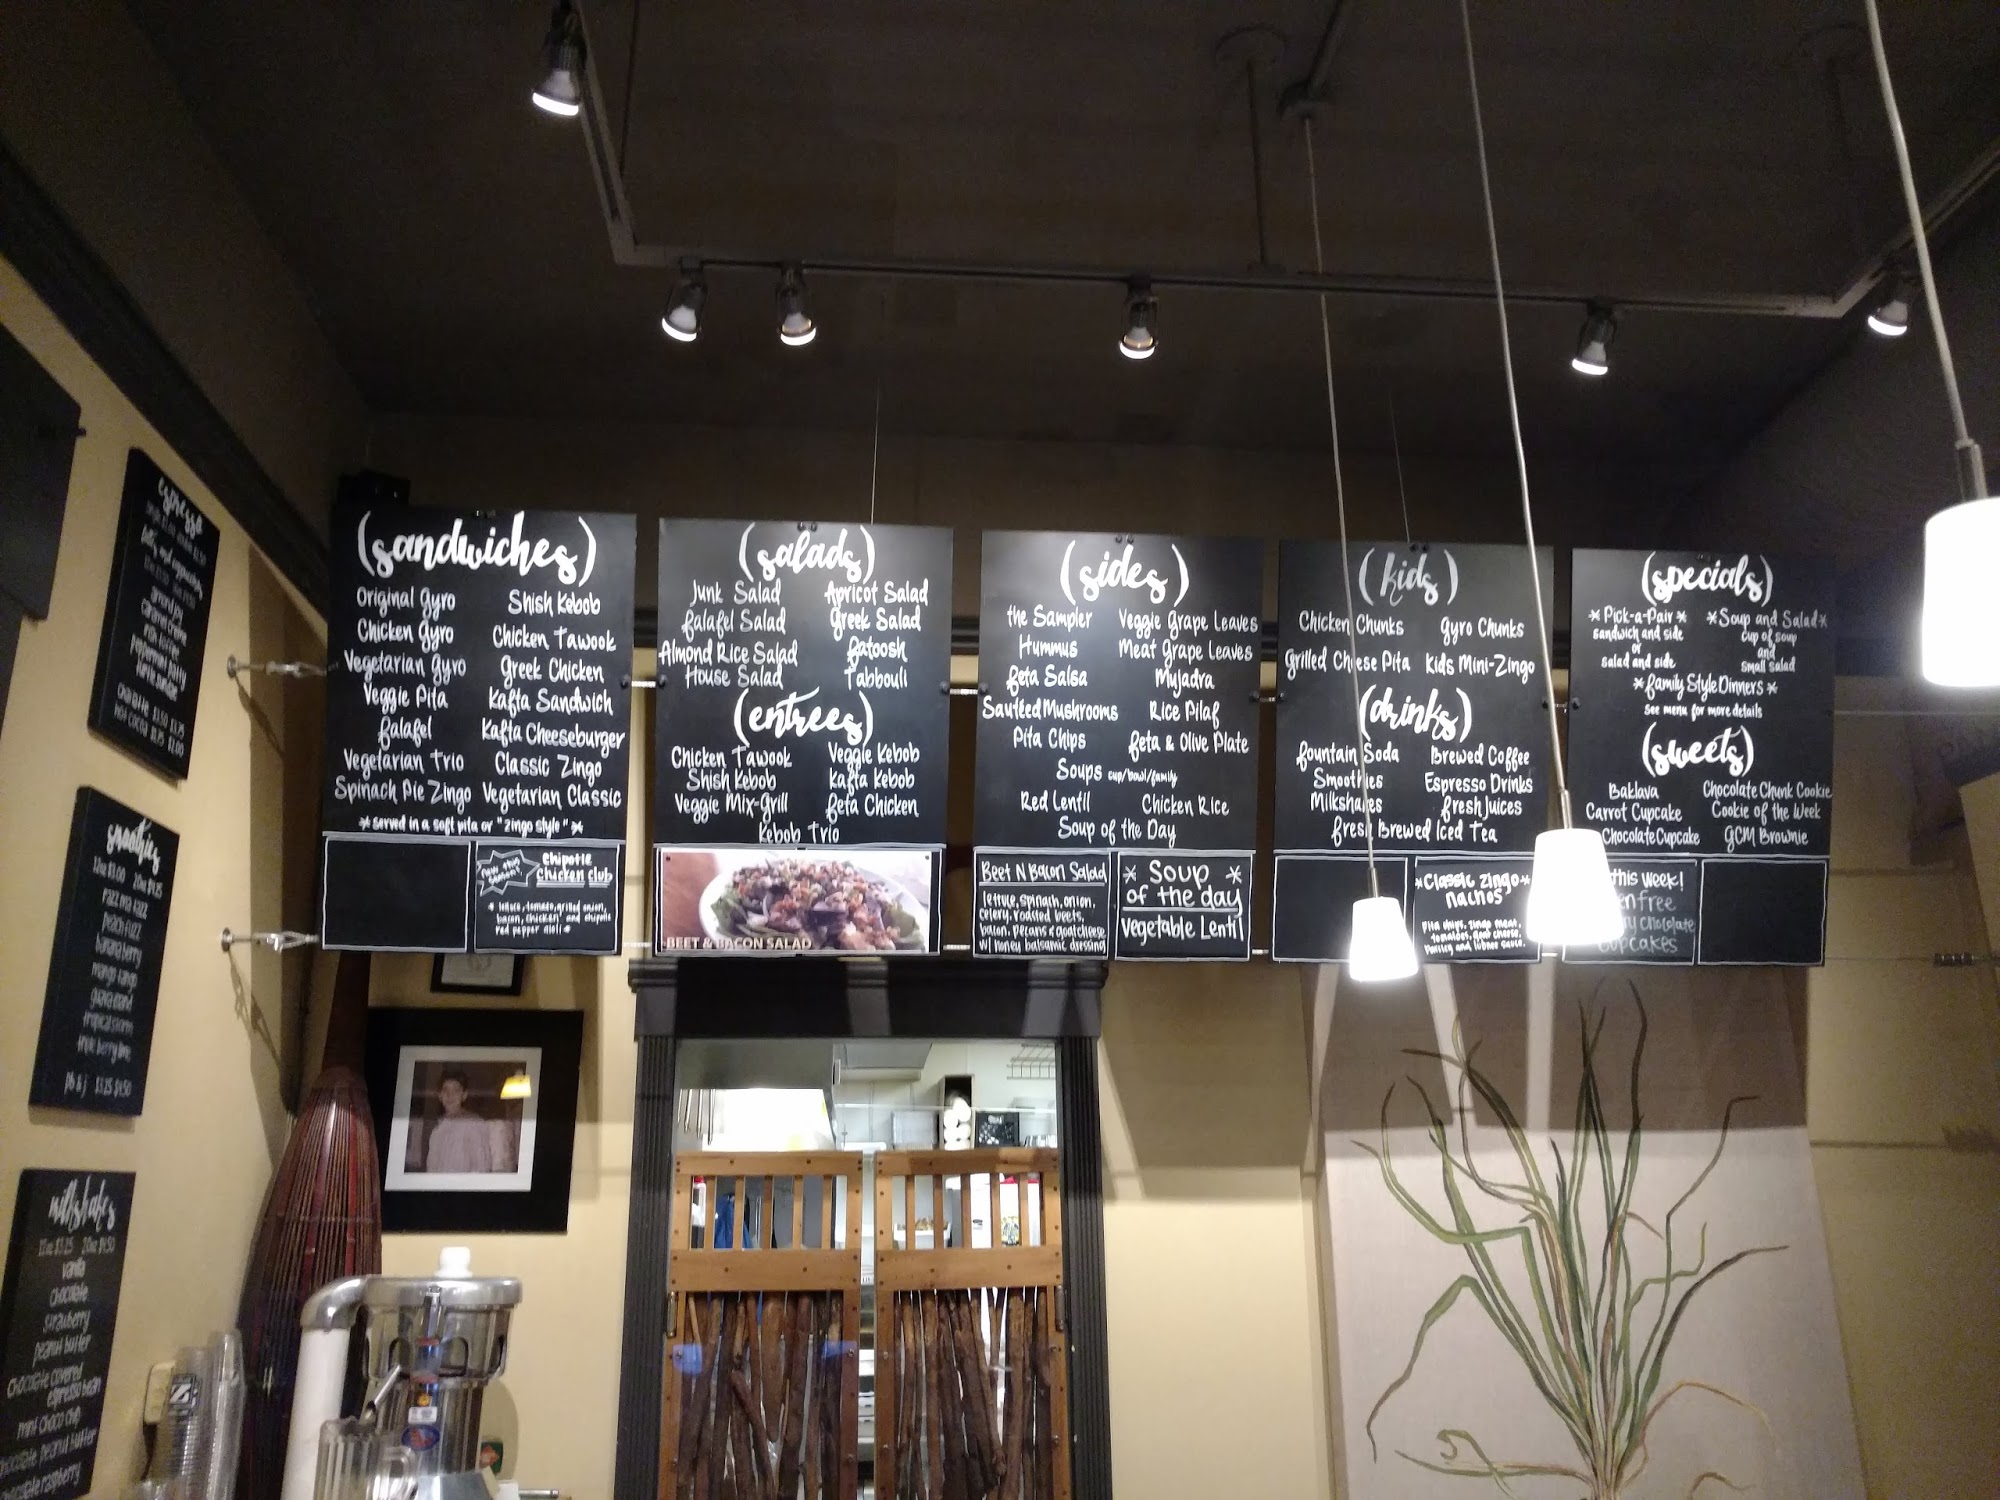 espresso
smoothies
12oz $3.00 20oz $4.25
razz ma tazz
peach fuzz
banana berry
mango tango
guava island
tropical storm
triple berry lime
pb & j $3.25 $4.50
milkshakes
12oz $3.25 20oz $4.50
vanilla
chocolate
strawberry
peanut butter
chocolate covered
espresso bean
mint choco chip
chocolate peanut butter
chocolate raspberry
(sandwiches)
Original Gyro Shish Kebob
Chicken Gyro Chicken Tawook
Vegetarian Gyro Greek Chicken
Veggie Pita Kafta Sandwich
Falafel Kafta Cheeseburger
Vegetarian Trio Classic Zingo
Spinach Pie Zingo Vegetarian Classic
*served in a soft pita or "zingo style"*
chipotle
chicken club
* lettuce, tomato, grilled onion,
bacon, chicken and chipotle
red pepper aioli *
(salads)
Junk Salad Apricot Salad
Falafel Salad Greek Salad
Almond Rice Salad Fatoosh
House Salad Tabbouli
(entrees)
Chicken Tawook Veggie Kebob
Shish Kebob Kafta Kebob
Veggie Mix-Grill Feta Chicken
Kebob Trio
BEET & BACON SALAD
(sides)
the Sampler Veggie Grape Leaves
Hummus Meat Grape Leaves
Feta Salsa Mujadra
Sautéed Mushrooms Rice Pilaf
Pita Chips Feta & Olive Plate
Soups cup/bowl/family
Red Lentil Chicken Rice
Soup of the Day
Beet N Bacon Salad
lettuce, spinach, onion,
celery, roasted beets,
bacon, pecans & goat cheese
w/ honey balsamic dressing
* Soup *
of the day
vegetable Lentil
(kids)
Chicken Chunks Gyro Chunks
Grilled Cheese Pita Kids Mini-Zingo
(drinks)
Fountain Soda Brewed Coffee
Smoothies Espresso Drinks
Milkshakes Fresh Juices
Fresh Brewed Iced Tea
*Classic Zingo*
nachos
Pita chips, zingo meat,
tomatoes, goat cheese,
(specials)
*Pick-a-Pair* *Soup and Salad*
sandwich and side cup of soup
or and
salad and side small salad
*Family Style Dinners*
see menu for more details
(sweets)
Baklava Chocolate Chunk Cookie
Carrot Cupcake Cookie of the Week
Chocolate Cupcake GCM Brownie
this week!
free
chocolate
cupcakes